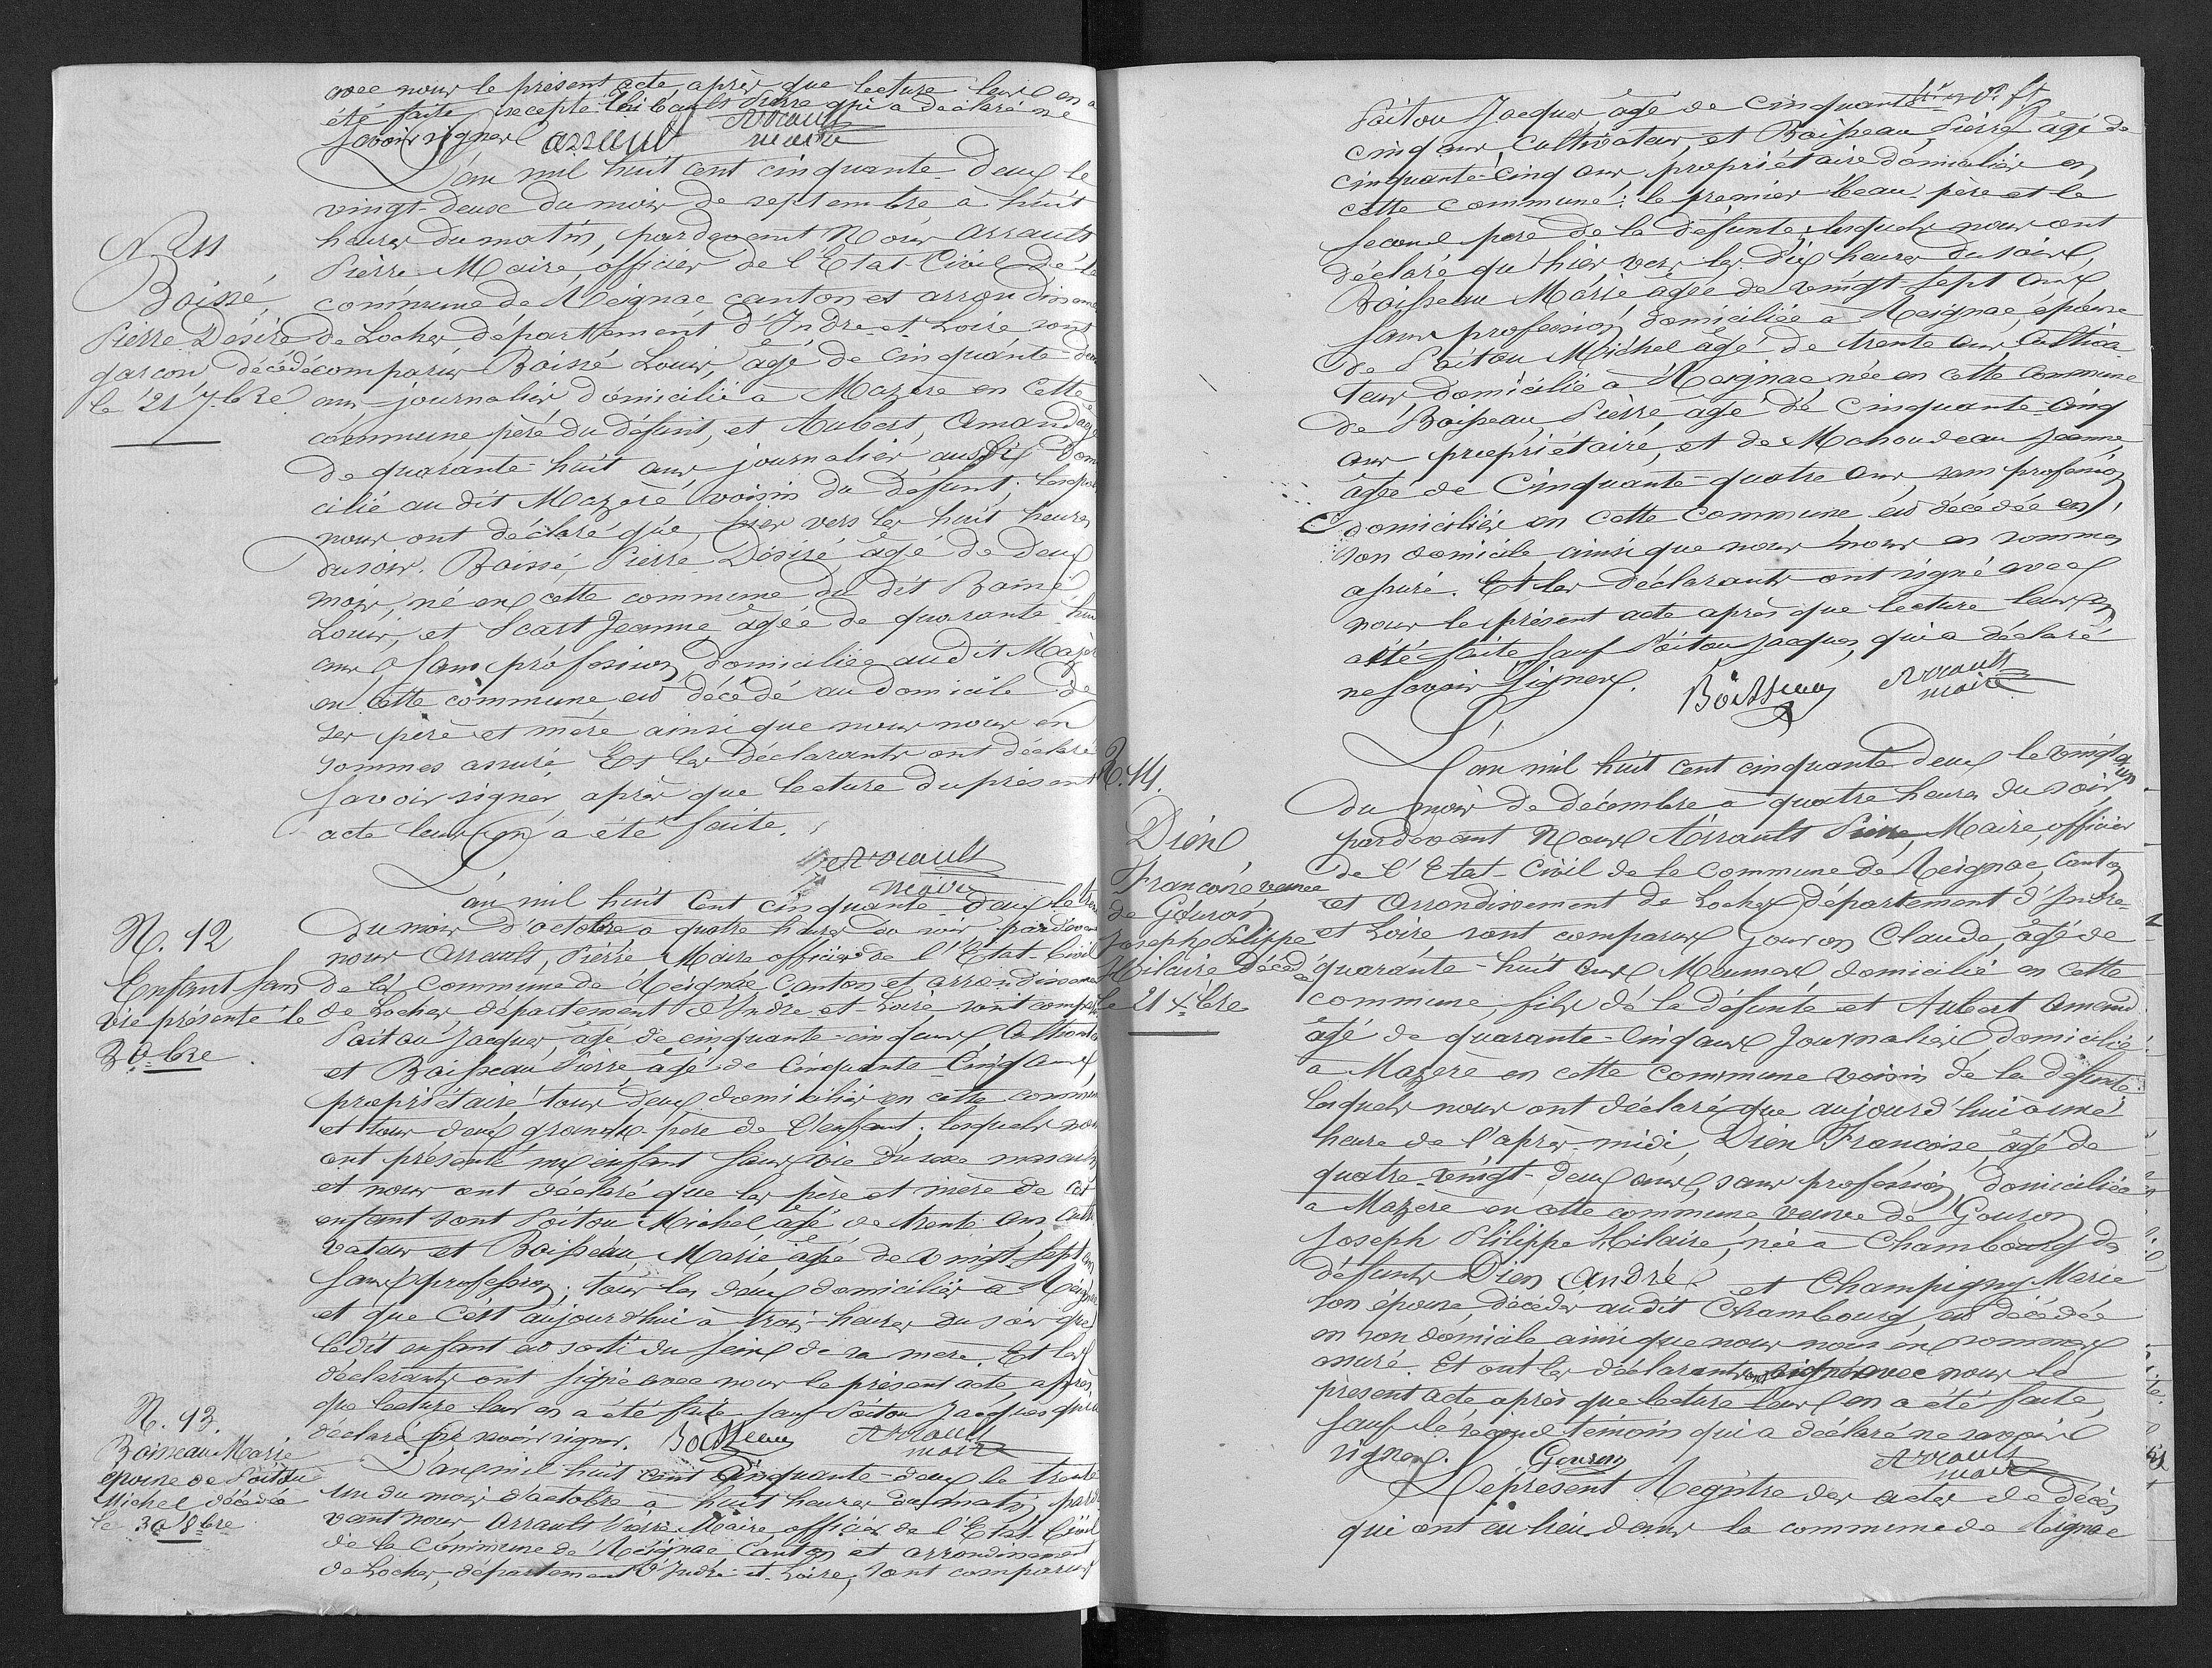 avec nous le présent acte, après que lecture leur en a
été faite excepté Pierre qui a déclaré ne
savoir signer Arrault Arrault maire
N. 11
Boissé
Pierre Désiré
garçon décédé
le 21 7.bre
L'an mil huit cent cinquante-deux le
vingt-deux du mois de septembre à huit
heures du matin, pardevant Nous Arrault
Pierre Maire, officier de l'Etat-Civil de la
commune de Reignac canton et arrondissement
de Loches département d'Indre et Loire sont
comparus Boissé Louis, âgé de cinquante-deux
ans journalier domicilié à Mazère en cette
commune père du défunt, et Aubert, Amand âgé
de quarante-huit ans journalier aussi domi
cilié au dit Mazère voisin du défunt; lesquels
nous ont déclaré que, hier vers les huit heures
du soir, Boissé Pierre Désiré, âgé de deux
mois, né en cette commune du dit Boissé
Louis, et Jeanne âgée de quarante-huit
ans sans profession domiciliés au dit Mazère
en cette commune, est décédé au domicile de
ses père et mère ainsi que nous nous en
sommes assuré. Et les déclarants ont déclaré
savoir signer, après que lecture du présent
acte leur en a été faite.
Arrault
maire
N. 12
Enfant sans
vie présenté le
3 8.bre
L'an mil huit cent cinquante-deux le
du mois d'octobre à quatre heures du soir pardevant
nous Arrault, Pierre Maire officier de l'Etat-Civil
de la commune de Reignac Canton et arrondissement
de Loches département d'Indre-et-Loire sont comparus
Poitou Jacques, âgé de cinquante-cinq ans, Cultivateur
et Boisseau Pierre âgé de Cinquante-Cinq ans,
propriétaire tous deux domiciliés en cette commune
et tous deux grands-père de l'enfant; lesquels nous
ont présenté un enfant sans vie du sexe masculin
et nous ont déclaré que les père et mère de cet
enfant sont Poitou Michel âgé de trente ans, culti
vateur et Boisseau, Marie âgée de vingt-sept ans
sans profession; tous les deux domiciliés à Reignac
et que c'est aujourd'hui à trois heures du soir que
le dit enfant est sorti du sein de sa mère. Et les
déclarants ont signé avec nous le présent acte après
que lecture leur en a été faite sauf Poitou Jacques qui a
déclaré ne savoir signer. Boisseau Arrault
maire
N. 13.
Boisseau Marie
épouse de Poitou
Michel décédée
le 30 8bre
L'an mil huit cent cinquante-deux le trente
un du mois d'octobre à huit heures du matin, parde
vant nous Arrault Pierre Maire, officier de l'Etat Civil
de la Commune de Reignac Canton et arrondissement
de Loches, département d'Indre-et-Loire, sont comparus
Poitou Jacques âgé de cinquante
cinq ans, Cultivateur, et Boisseau Pierre âgé de
cinquante-cinq ans, propriétaire domiciliés en
cette commune: le premier beau-père et le
second père de la défunte; lesquels nous ont
déclaré qu'hier vers les dix heures du soir,
Boisseau Marie âgée de vingt-sept ans
sans profession domiciliée à Reignac, épouse
de Poitou Michel âgé de trente ans, Cultiva
teur, domicilié à Reignac née en cette commune
de Boisseau Pierre, âgé de Cinquante-Cinq
ans propriétaire, et de Mahoudeau Jeanne,
âgée de Cinquante-quatre ans, sans profession
domiciliés en cette commune, est décédée en
son domicile ainsi que nous nous en sommes
assuré. Et les déclarants ont signé avec
nous le présent acte après que lecture leur en
a été faite sauf Poitou Jacques, qui a déclaré
ne savoir signer. Boisseau Arrault
maire
N. 14.
Dien
Françoise veuve
de Gouron
Joseph Philippe
Hilaire décédée
le 21 X.bre
L'an mil huit cent cinquante-deux le vingt-un
du mois de décembre à quatre heures du soir
pardevant Nous Arrault Pierre, Maire, officier
de l'Etat-Civil de la Commune de Reignac, Canton
et Arrondissement de Loches, département d'Indre-
et Loire sont comparus Gouron Claude, âgé de
quarante-huit ans Meunier domicilié en cette
commune, fils de la défunte et Aubert Amand
âgé de quarante-Cinq ans Journalier domicilié
à Mazère en cette commune voisin de la défunte:
lesquels nous ont déclaré que aujourd'hui à une
heure de l'après-midi, Dien Françoise âgé de
quatre-vingt-deux ans, sans profession, domiciliée
à Mazère en cette commune, veuve de Gouron
Joseph Philippe Hilaire, née à Chambourg de
défunts Dien André et Champigny Marie
son épouse, décédés au dit Chambourg, est décédée
en son domicile ainsi que nous nous en sommes
assuré. Et ont les déclarants signé avec nous le
présent acte après que lecture leur en a été faite,
sauf le second témoin qui a déclaré ne savoir
signer. Gouron Arrault
maire
Le présent Registre des actes de décès
qui ont eu lieu dans la commune de Reignac